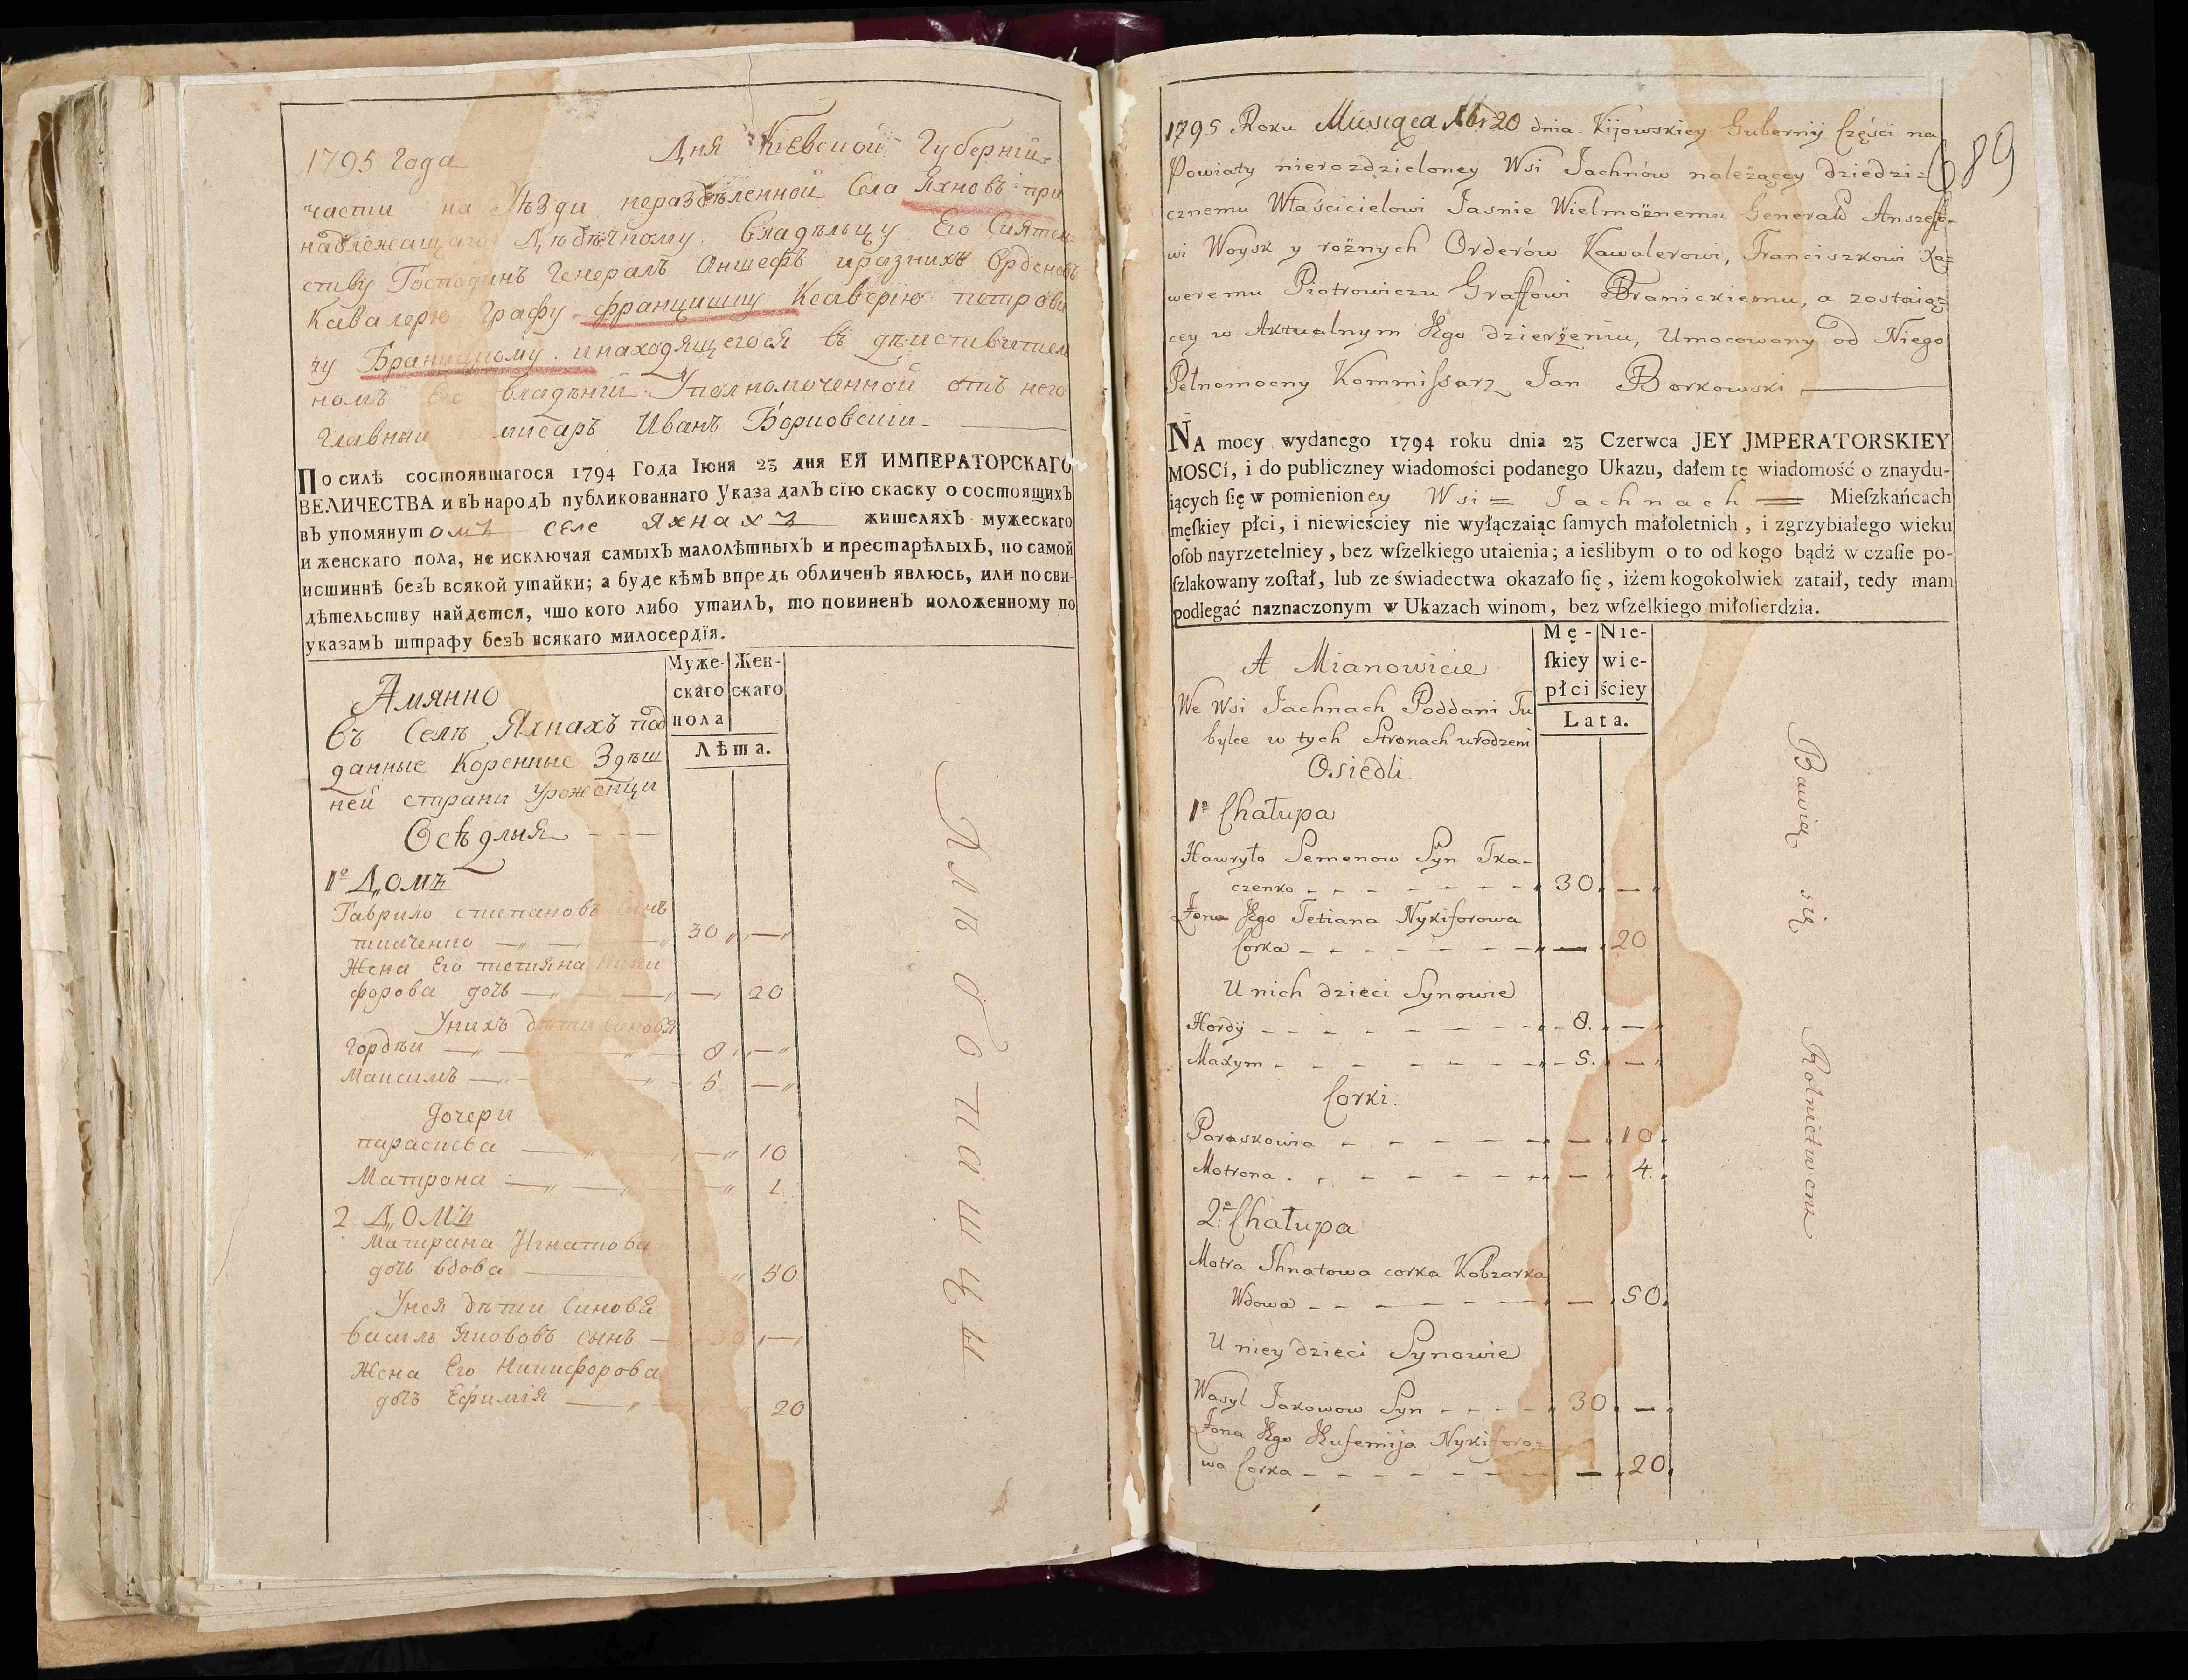 1795 Года Дня Кіевской Губерніи
части на Уѣзди нераздѣленной Села Яхновъ при
надлежащаго Дѣдичному Владѣльцу Его Сіятел
ству Господинъ Генералъ Аншефъ иразнихъ Орденовъ
Кавалерю Графу францишку Ксаверію петрови
чу Браницкому инаходящегося въ дѣиствител
номъ Его владѣніи Уполномоченной отъ него
Главныи мисаръ Иванъ Борковскіи
По силѣ состоявшагося 1794 Года Іюня 23 дня ЕЯ ИМПЕРАТОРСКАГО
ВЕЛИЧЕСТВА и въ народъ публикованнаго Указа далъ сію скаску о состоящихъ
въ упомянутомъ селе Яхнахъ жителяхъ мужескаго
и женскаго пола, не исключая самыхъ малолѣтныхъ и престарѣлыхъ, по самой
истиннѣ безъ всякой утайки; а буде кѣмъ впредь обличенъ явлюсь, или по сви-
дѣтельству найдется, что кого либо утаилъ, то повиненъ положенному по
указамъ штрафу безъ всякаго милосердїя.
Муже- Жен-
скаго скаго
пола
Лѣта.
Амянно
въ Селѣ Яхнахъ под
данные Коренные Здѣш
ней страни Уроженци
Осѣдлыя
1º Домъ
Гаврило степановъ Синъ
ткаченко 30
Жена Его тетияна Ники
форова дочъ 20
Унихъ дѣти Синовя
Гордѣи 8
Максимъ 5
Дочери
параскева 10
Матрона
2 Домъ
Матрана Игнатова
дочъ вдова 50
Унея дѣти Синовя
василъ Якововъ сынъ 30
Жена Его Никифорова
дочъ Ефимія 20
Хлѣбопашцы
1795 Roku Miesiąca Xbr 20 dnia Kijowskiey Gubernij Części na
Powiaty nierozdzieloney Wsi Jachnów należącey dziedzi=
cznemu Właścicielowi Jasnie Wielmożnemu Generał Anszefo-
wi Woysk y rożnych Orderów Kawalerowi, Franciszkowi Xa=
weremu Piotrowiczu Graffowi Branickiemu, a zostaią=
cey w Aktualnym Jego dzierżeniu, Umocowany od Niego
Pełnomocny Kommissarz Jan Borkowski
689
NA mocy wydanego 1794 roku dnia 23 Czerwca JEY JMPERATORSKIEY
MOSCí, i do publiczney wiadomości podanego Ukazu, dałem tę wiadomość o znaydu-
iących ſię w pomienioney Wsi = Jachnach = Mieſzkańcach
męſkiey płci, i niewieściey nie wyłączaiąc ſamych małoletnich, i zgrzybiałego wieku
oſob nayrzetelniey, bez wſzelkiego utaienia; a ieślibym o to od kogo bądź w czaſie po-
ſzlakowany zoſtał, lub ze świadectwa okazało ſię, iżem kogokolwiek zataił, tedy mam
podlegać naznaczonym w Ukazach winom, bez wſzelkiego miłoſierdzia.
Mę- Nie-
ſkiey wie-
płci ściey
Lata.
A Mianowicie
We Wsi Jachnach Poddani Tu
bylce w tych Stronach urodzeni
Osiedli.
1ª Chałupa
Hawryło Semenow Syn Tka-
czenko 30
Żona Jego Tetiana Nykiforowa
Corka 20
U nich dzieci Synowie
Hordij 8.
Maxym 5.
Corki.
Paraskowia 10
Motrona 4.
2ª: Chałupa
Motra Jhnatowa corka Kobzarka
Wdowa 50.
U niey dzieci Synowie
Wasyl Jakowow Syn 30
Żona Jego Eufemija Nykiforo=
wa Corka 20
Bawią się Rolnictwem